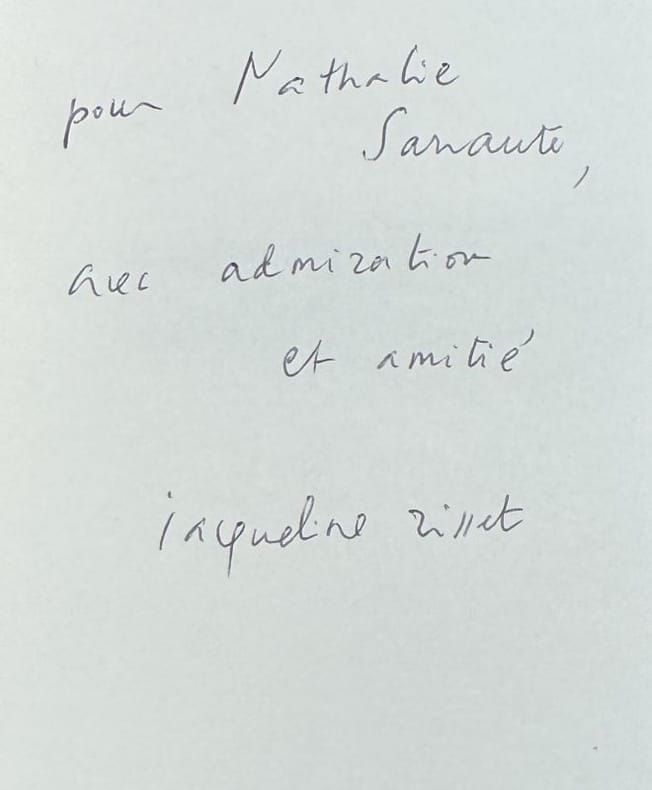 pour Nathalie
Sarraute,
avec admiration
et amitié
jacqueline risset